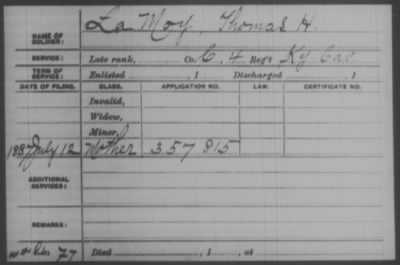 NAME OF SOLDIER: La Moy, Thomas H.
SERVICE: Late rank, Co. C, 4 Reg't Ky Cav.
TERM OF SERVICE: Enlisted , 1 Discharged , 1
DATE OF FILING. CLASS. APPLICATION NO. LAW. CERTIFICATE NO.
Invalid,
Widow,
Minor,
1887 July 12 Mother 357 815
ADDITIONAL SERVICES:
REMARKS:
77 Died , 1 , at